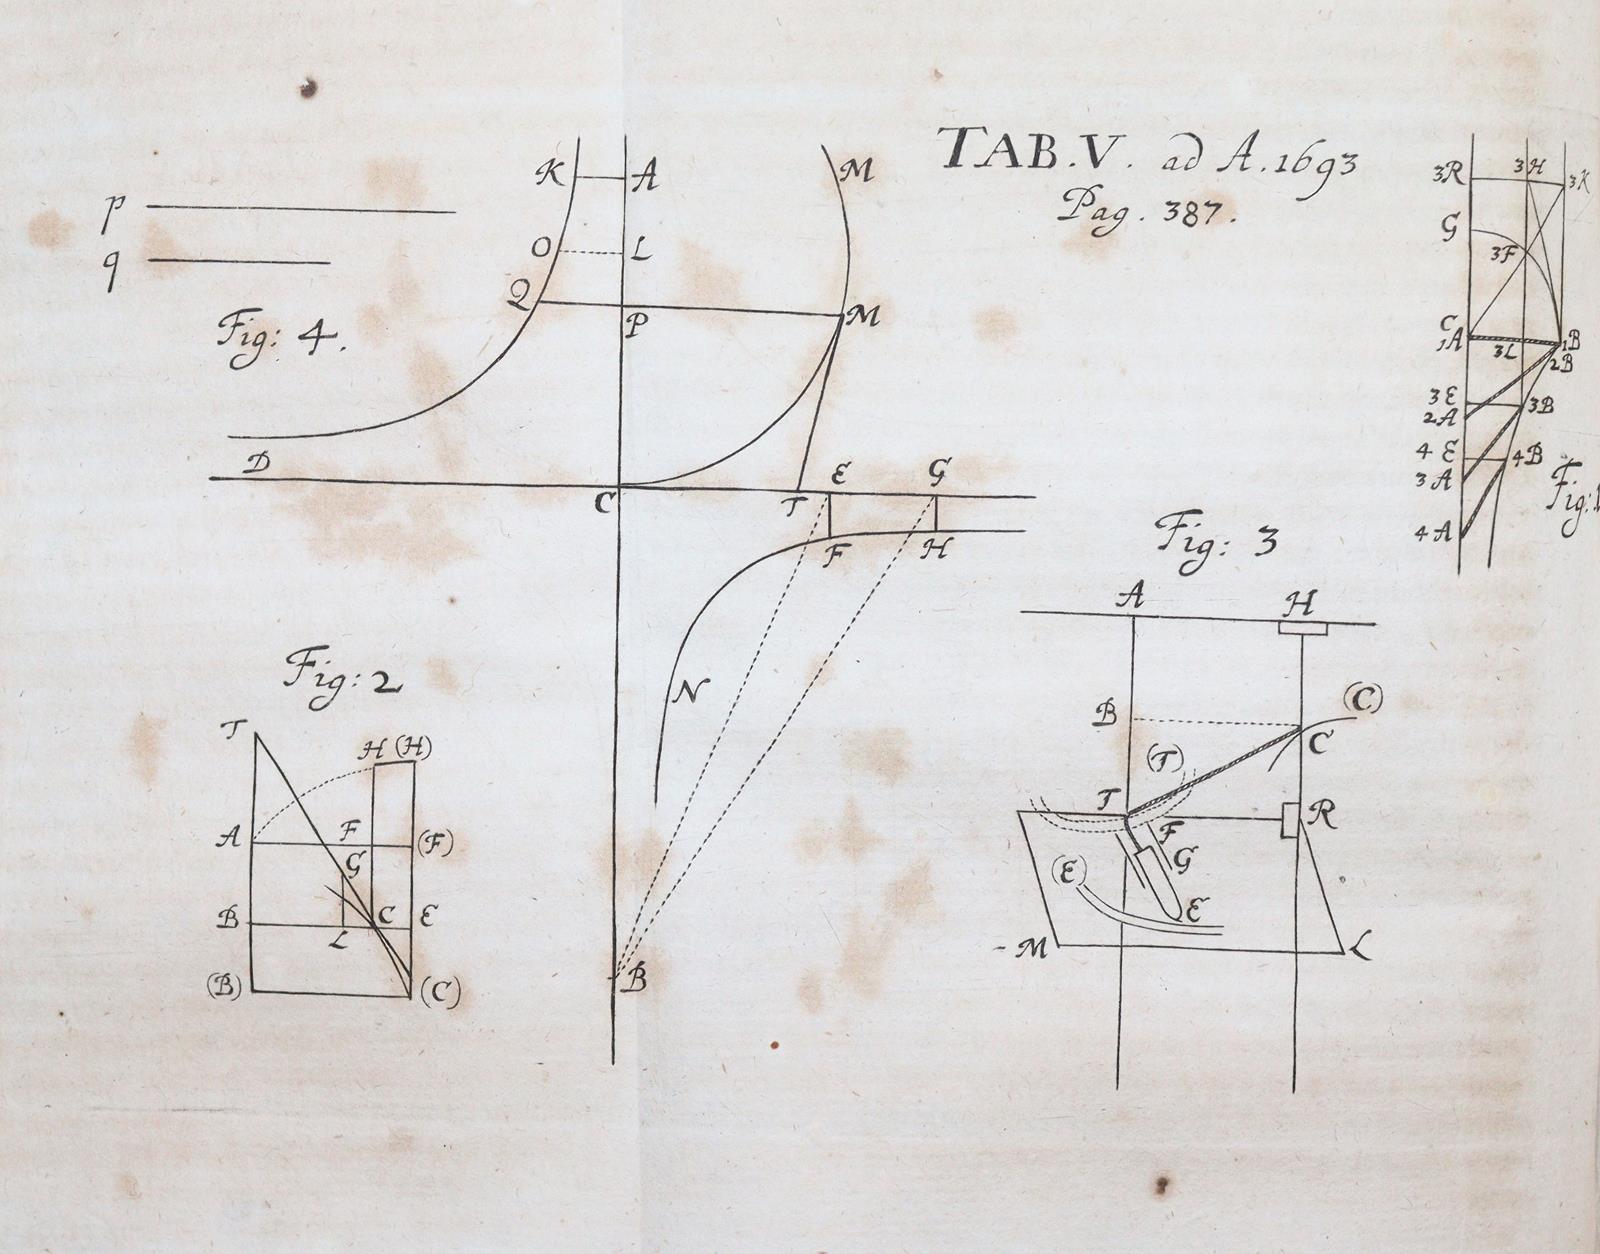 TAB.V. ad A.1693
Pag. 387.
p
q
Fig: 4.
K A
O L
Q P M
M
D
C T E G
F H
N
B
Fig: 2
T
H (H)
A F (F)
G
B L C E
(B) (C)
Fig: 3
A H
B C (C)
(T)
T F R
G
(E) E
M L
3R 3H 3K
G
3F
C
1A 3L 1B
2B
3E 3B
2A
4E 4B
3A
4A
Fig:1